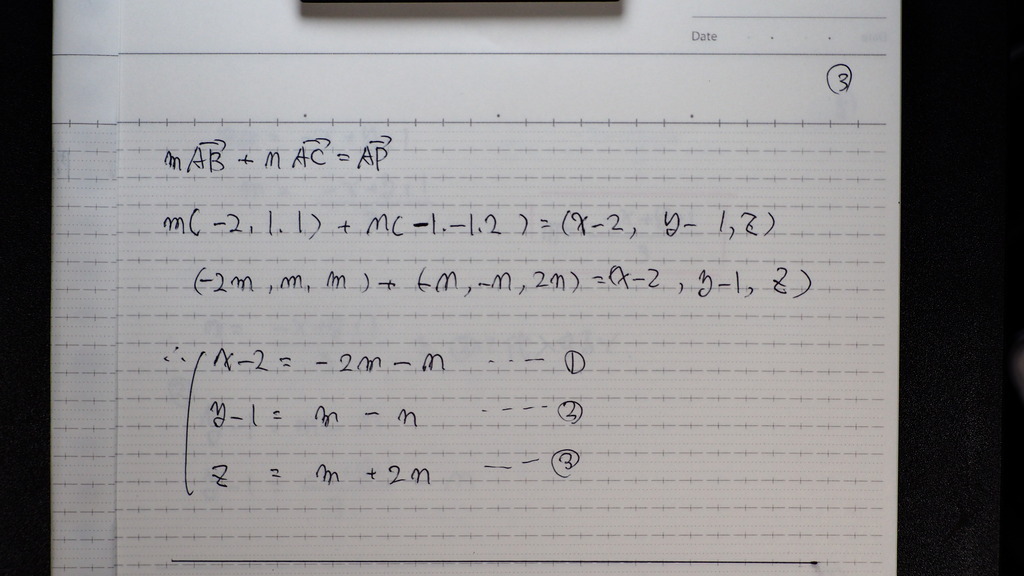 Date
③
mAB→ + nAC→ = AP→
m(-2, 1. 1) + n(-1. -1. 2) = (x-2, y-1, z)
(-2m, m, m) + (-n, -n, 2n) = (x-2, y-1, z)
∴ { x-2 = -2m-n ---- ①
y-1 = m-n ---- ②
z = m+2n --- ③